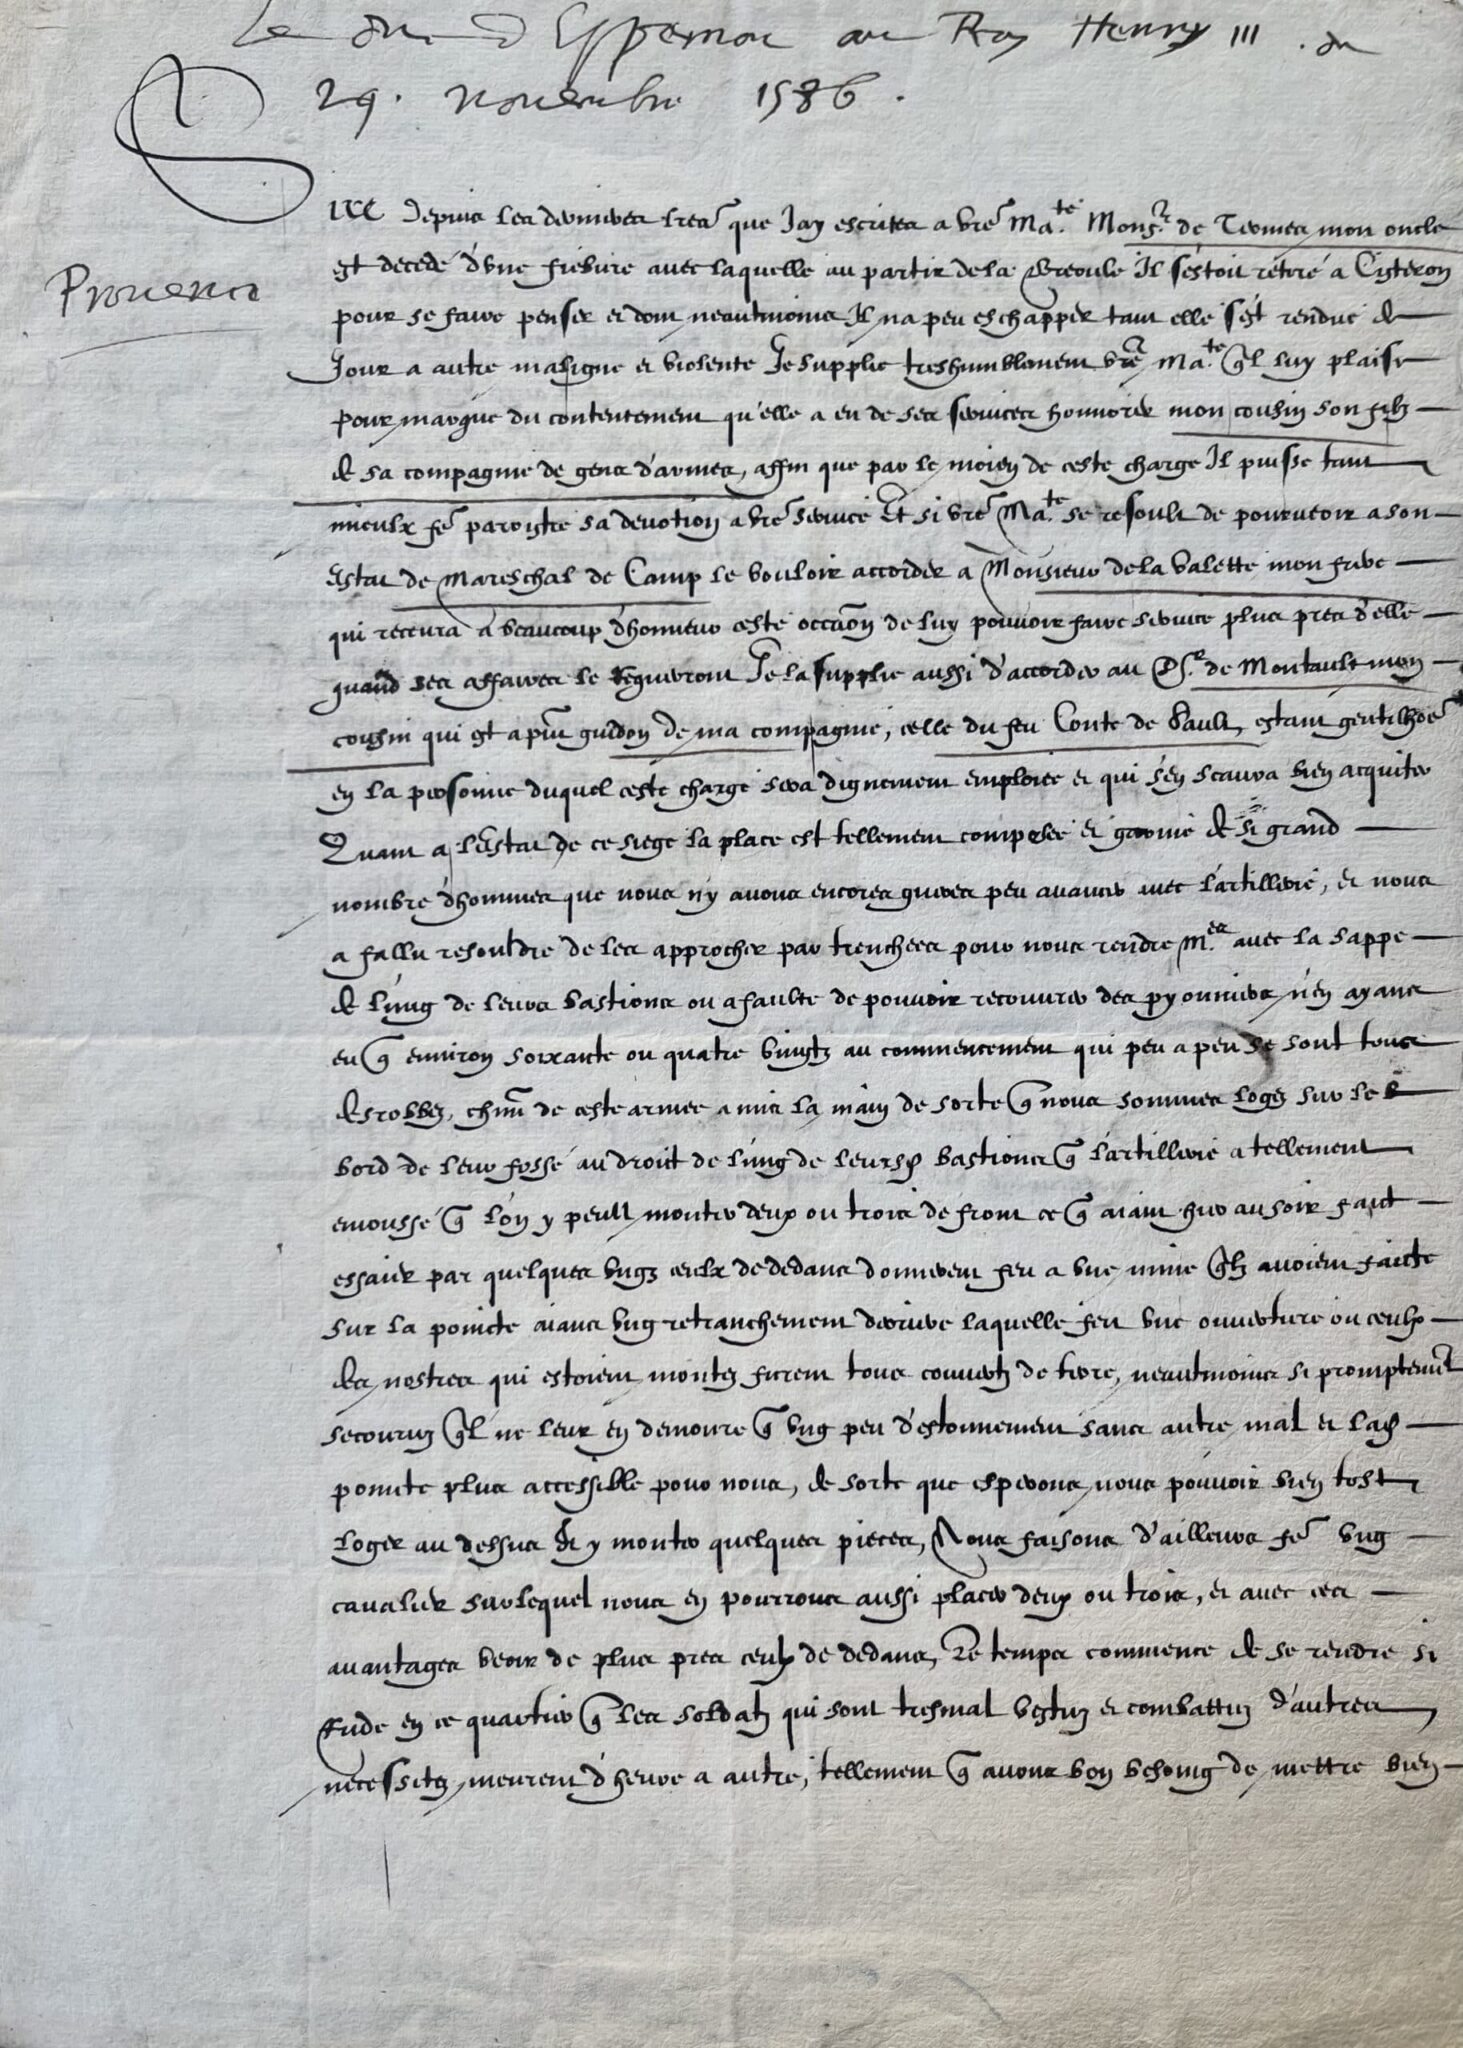 Le duc d'Espernon au Roy Henry III. du
29. novembre 1586.
Provence
Sire depuis les dernieres lres que Jay escrites a vre Ma.te Monsr. de Termes mon oncle
est decedé d'une fiebvre avec laquelle au partir de la Breoule Il s'estoit retiré a Cisteron
pour se faire penser et dont neantmoins Il na peu eschapper tant elle s'est rendue de
Jour a autre maligne et violente Je supplie treshumblement vre Ma.te ql luy plaise
pour marque du contentement qu'elle a eu de ses services honnorer mon cousin son filz
de sa compagnie de gens d'armes, affin que par le moien de ceste charge Il puisse tant
mieulx fe paroistre sa devotion a vre service Et si vre Ma.te se resoult de pourveoir a son
estat de Mareschal de Camp le vouloir accorder a Monsieur de la Valette mon frere
qui recevra a beaucoup d'honneur ceste occaon de luy pouvoir faire service plus pres d'elle
quand ses affaires le requerront Je la supplie aussi d'accorder au Sr. de Montault mon
cousin qui est a pnt guidon de ma compagnie, celle du feu Conte de Sault, estant gentilhoe
en la personne duquel ceste charge sera dignement emploiee et qui s'en scaura bien acquiter
Quant a l'estat de ce siege la place est tellement composee et garnie de si grand
nombre d'hommes que nous n'y avons encores gueres peu avancer avec l'artillerie, et nous
a fallu resouldre de les approcher par trenchees pour nous rendre M.es avec la sappe
de l'ung de leurs bastions ou a faulte de pouvoir recouvrer des pyonniers n'en ayans
eu q environ soixante ou quatre vingtz au commencement qui peu a peu se sont tous
desrobbez, chun de ceste armee a mis la main de sorte q nous sommes logez sur le
bord de leur fossé au droict de l'ung de leursd bastions q l'artillerie a tellement
emoussé q l'on y peult monter deux ou trois de front ce q aiant hier au soir faict
essaier par quelques ungz ceulx de dedans donnerent feu a une mine qlz avoient faicte
sur la poincte aians ung retranchement derriere laquelle feit une ouverture ou ceulx
des nostres qui estoient montez furent tous couvertz de terre, neantmoins si promptemt
secouruz ql ne leur en demoure q ung peu d'estonnement sans autre mal et lad
poincte plus accessible pour nous, de sorte que esperons nous pouvoir bien tost
loger au dessus et y monter quelques pieces, Nous faisons d'ailleurs fe ung
cavalier sur lequel nous en pourrons aussi placer deux ou trois, et avec ces
avantages veoir de plus pres ceulx de dedans, Le temps commence de se rendre si
rude en ce quartier q les soldatz qui sont tresmal vestuz et combattuz d'autres
necessitez meurent d'heure a autre, tellement q avons bon besoing de mettre bien